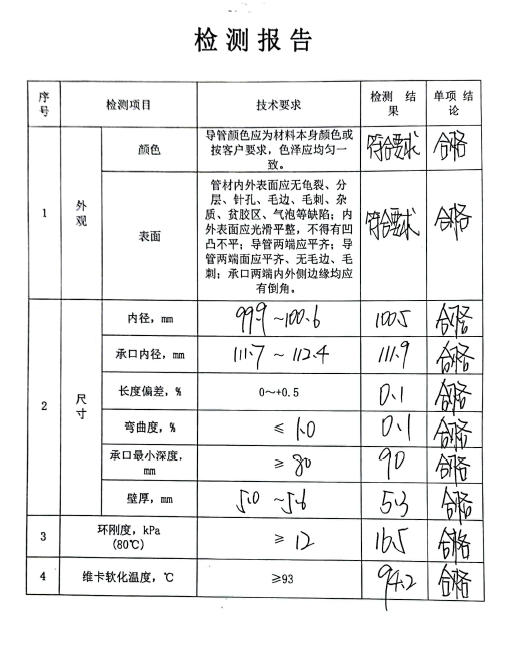 检测报告
序号 检测项目 技术要求 检测 结果 单项 结论
1 外观 颜色 导管颜色应为材料本身颜色或
按客户要求，色泽应均匀一
致。 符合要求 合格
表面 管材内外表面应无龟裂、分
层、针孔、毛边、毛刺、杂
质、贫胶区、气泡等缺陷；内
外表面应光滑平整，不得有凹
凸不平；导管两端应平齐；导
管两端面应平齐、无毛边、毛
刺；承口两端内外侧边缘均应
有倒角。 符合要求 合格
2 尺寸 内径，mm 99.9 ~100.6 100.5 合格
承口内径，mm 111.7 ~ 112.4 111.9 合格
长度偏差，% 0～+0.5 0.1 合格
弯曲度，% ≤ 1.0 0.1 合格
承口最小深度，
mm ≥ 80 90 合格
壁厚，mm 5.0 ~5.6 5.3 合格
3 环刚度，kPa
(80℃) ≥ 12 16.5 合格
4 维卡软化温度，℃ ≥93 94.2 合格